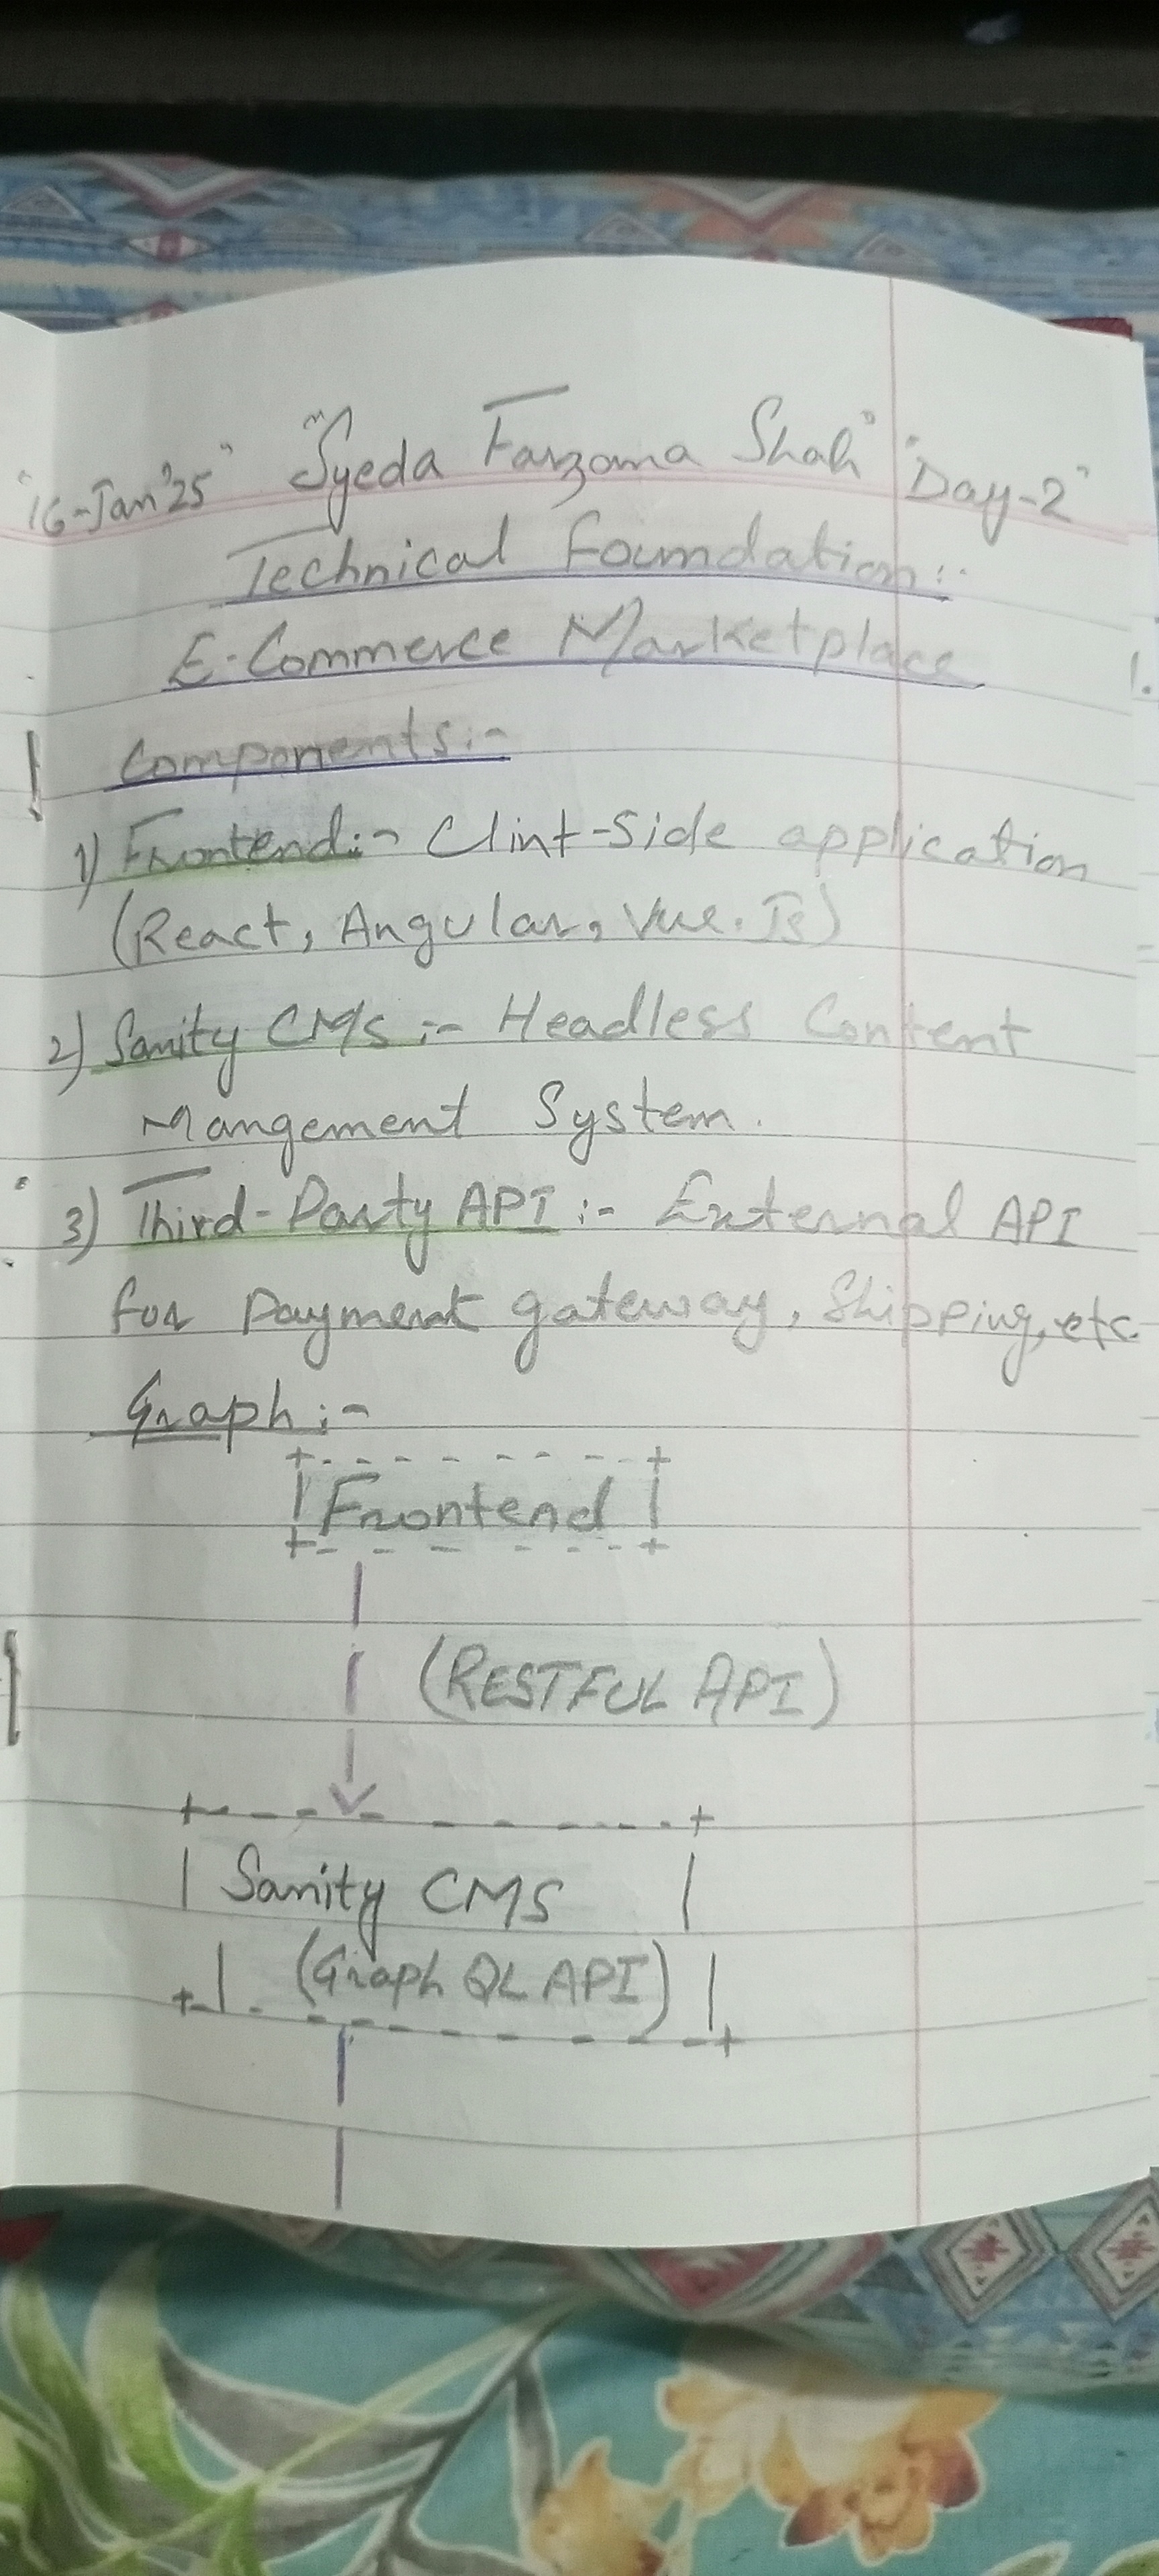 "16-Jan'25" "Syeda Farzana Shah" "Day-2"
Technical Foundation:-
E-Commerce Marketplace
Components:-
1) Frontend:- Clint-Side application
(React, Angular, Vue.Js)
2) Sanity CMS:- Headless Content
Mangement System.
3) Third-Party API:- External API
for payment gateway, Shipping, etc.
Graph:-
Frontend
(RESTFUL API)
Sanity CMS
(Graph QL API)